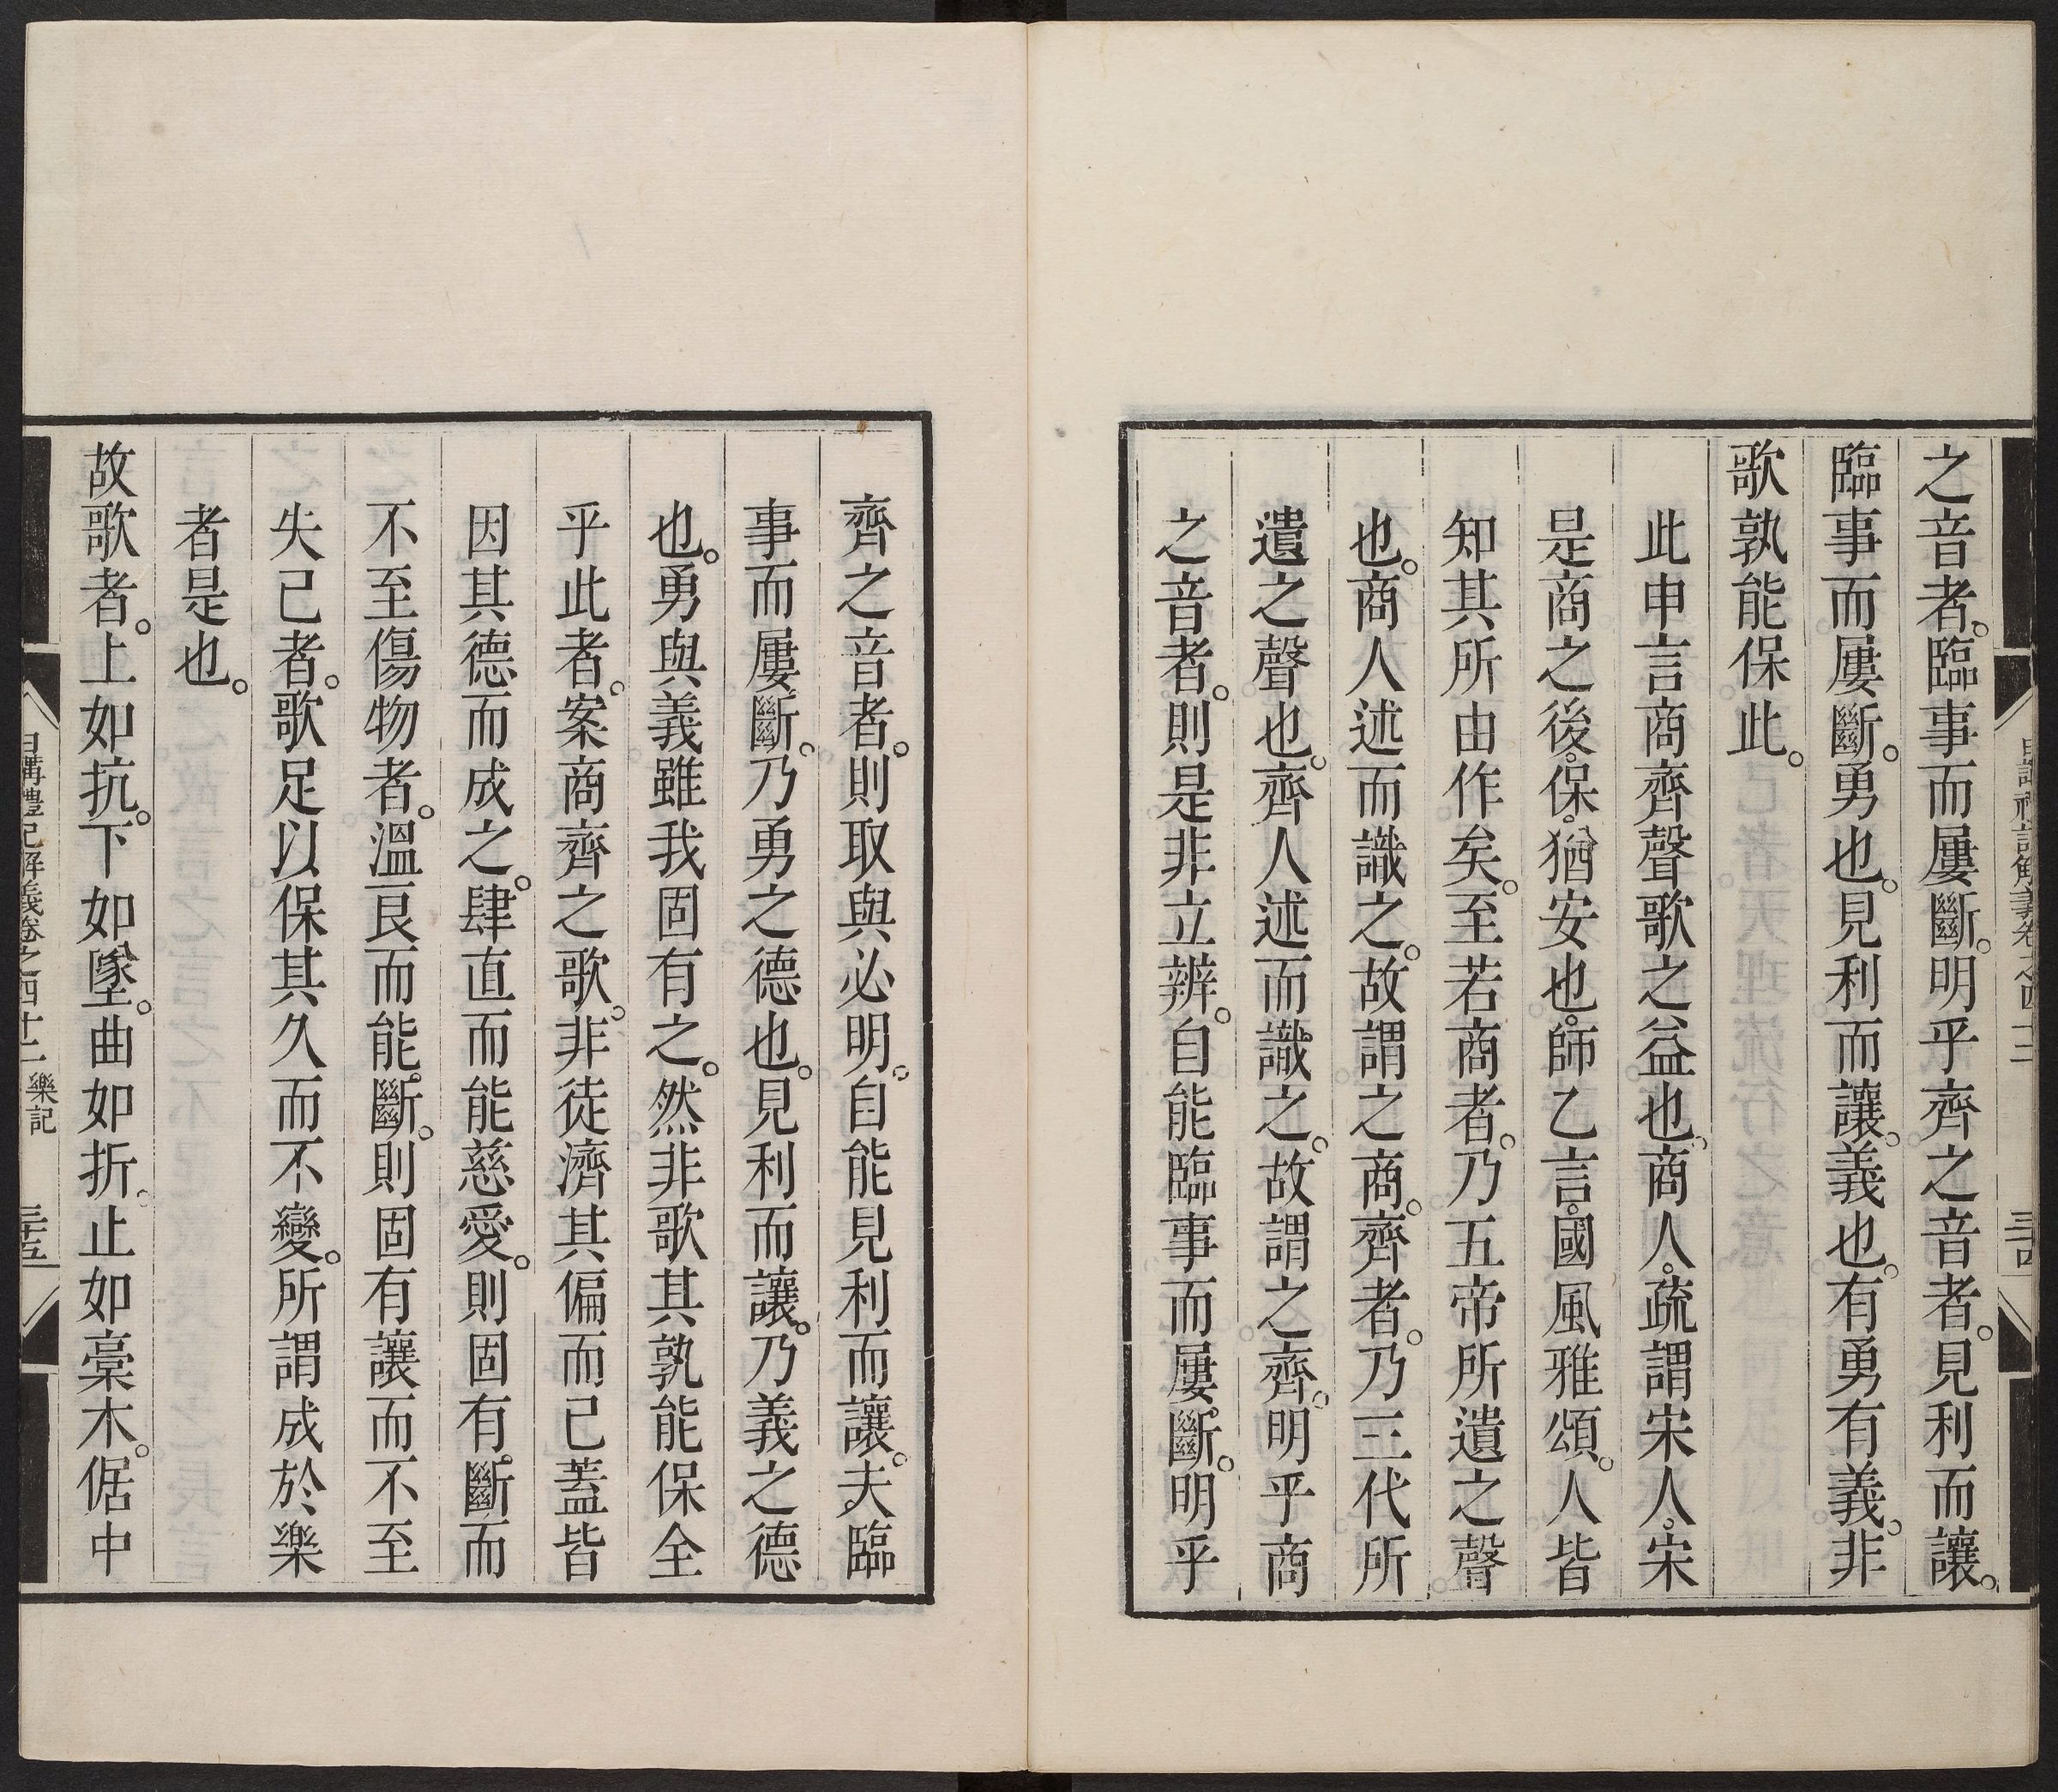 之音者。臨事而屢斷。明乎齊之音者。見利而讓。
臨事而屢斷。勇也。見利而讓。義也。有勇有義。非
歌孰能保此。
此申言商齊聲歌之益也。商人。疏謂宋人。宋
是商之後。保。猶安也。師乙言。國風雅頌。人皆
知其所由作矣。至若商者。乃五帝所遺之聲
也。商人述而識之。故謂之商。齊者。乃三代所
遺之聲也。齊人述而識之。故謂之齊。明乎商
之音者。則是非立辨。自能臨事而屢斷。明乎
齊之音者。則取與必明。自能見利而讓。夫臨
事而屢斷。乃勇之德也。見利而讓。乃義之德
也。勇與義雖我固有之。然非歌其孰能保全
乎此者。案商齊之歌。非徒濟其偏而已蓋皆
因其德而成之。肆直而能慈愛。則固有。斷而
不至傷物者。溫良而能斷。則固有讓而不至
失己者。歌足以保其久而不變。所謂成於樂
者是也。
故歌者。上如抗。下如墜。曲如折。止如槀木。倨中
日講禮記解義卷之四十二 樂記 三十五